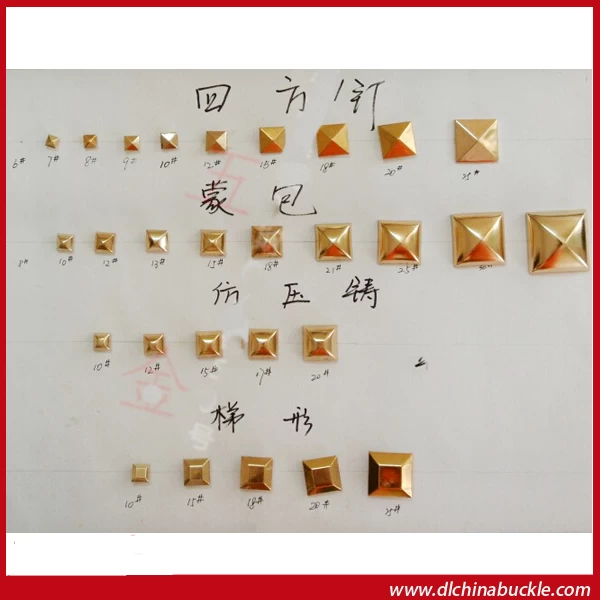 四方钉
6# 7# 8# 9# 10# 12# 15# 18# 20# 25#
蒙包
8# 10# 12# 13# 15# 18# 21# 25#
仿压铸
10# 12# 15# 17# 20#
梯形
10# 15# 18# 20# 25#
www.dlchinabuckle.com